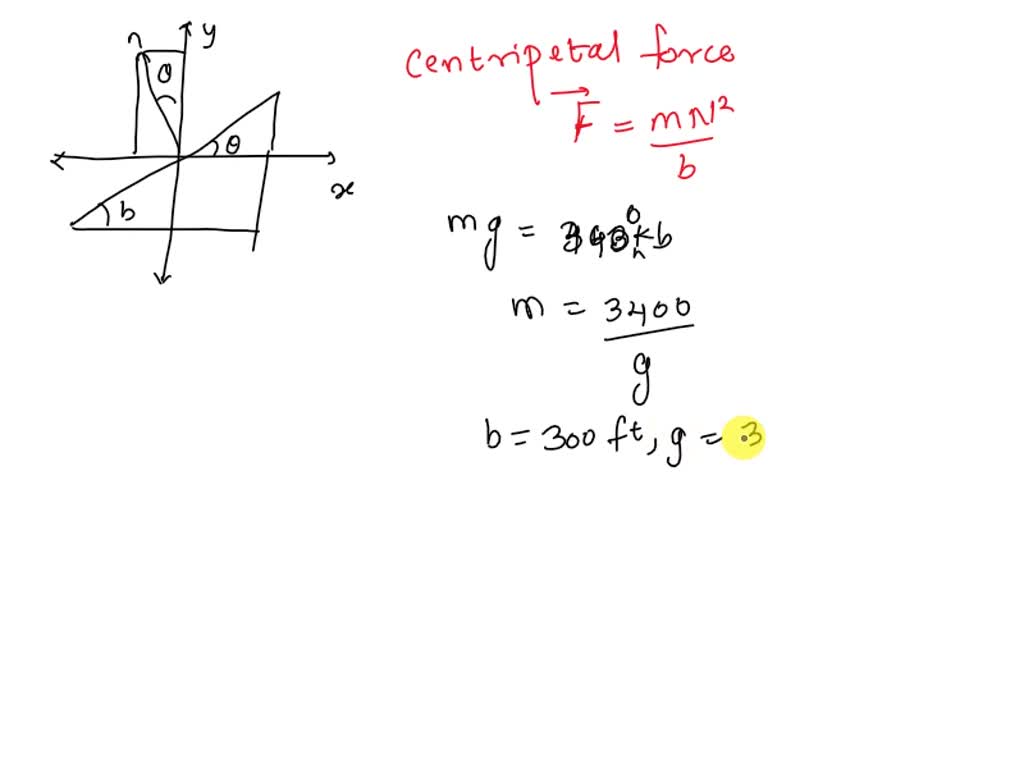 n
y
θ
θ
x
b
centripetal force
F = mv²/b
mg =
m = 3400/g
b = 300 ft, g = 3